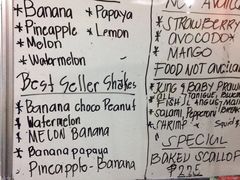 * Banana * Papaya
* Pineapple * Lemon
* Melon
* Watermelon
Best Seller Shakes
* Banana choco Peanut
* Watermelon
* MELON BANANA
* Banana papaya
Pineapple - Banana
NO AVAILA
* STRAWBERRY
* AVOCODO
* MANGO
FOOD NOT AVAILAB
* KING & BABY PRAW
* FISH
* Salami, Pepperoni
* SHRIMP * Squid
SPECIAL
BAKED SCALLOP